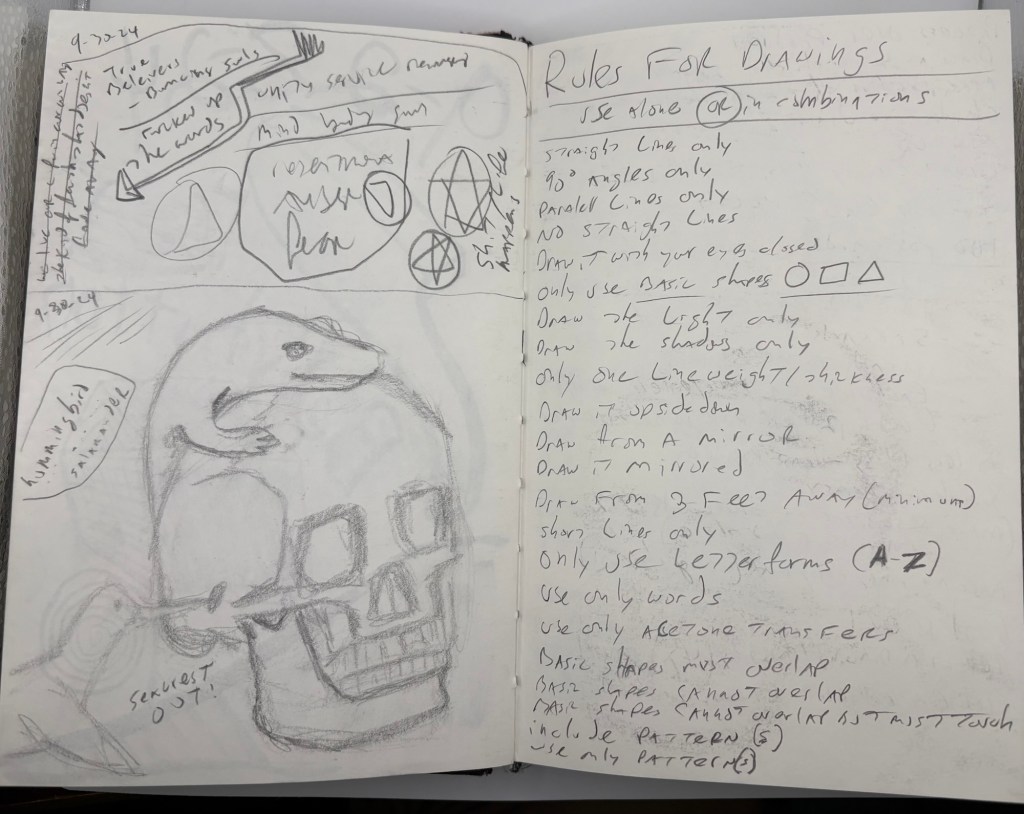 9-30-24
True
Believers
- Dancing Girls
Forked up
the words
unity service
mind body
Shit Life
9-30-24
hummingbird
seacrest
out!
Rules For Drawings
use Alone OR in combinations
Straight Lines only
90° Angles only
Paralell Lines only
No Straight Lines
Draw it with your eyes closed
only use Basic shapes
Draw the Light only
Draw the shadows only
only one Line weight/thickness
Draw it upside down
Draw from A mirror
Draw it mirrored
Draw From 3 Feet Away (minimum)
short Lines only
Only use Letterforms (A-Z)
use only words
use only Acetone Transfers
Basic shapes must overlap
Basic shapes cannot overlap
Basic shapes cannot overlap but must Touch
include Pattern(s)
use only Pattern(s)